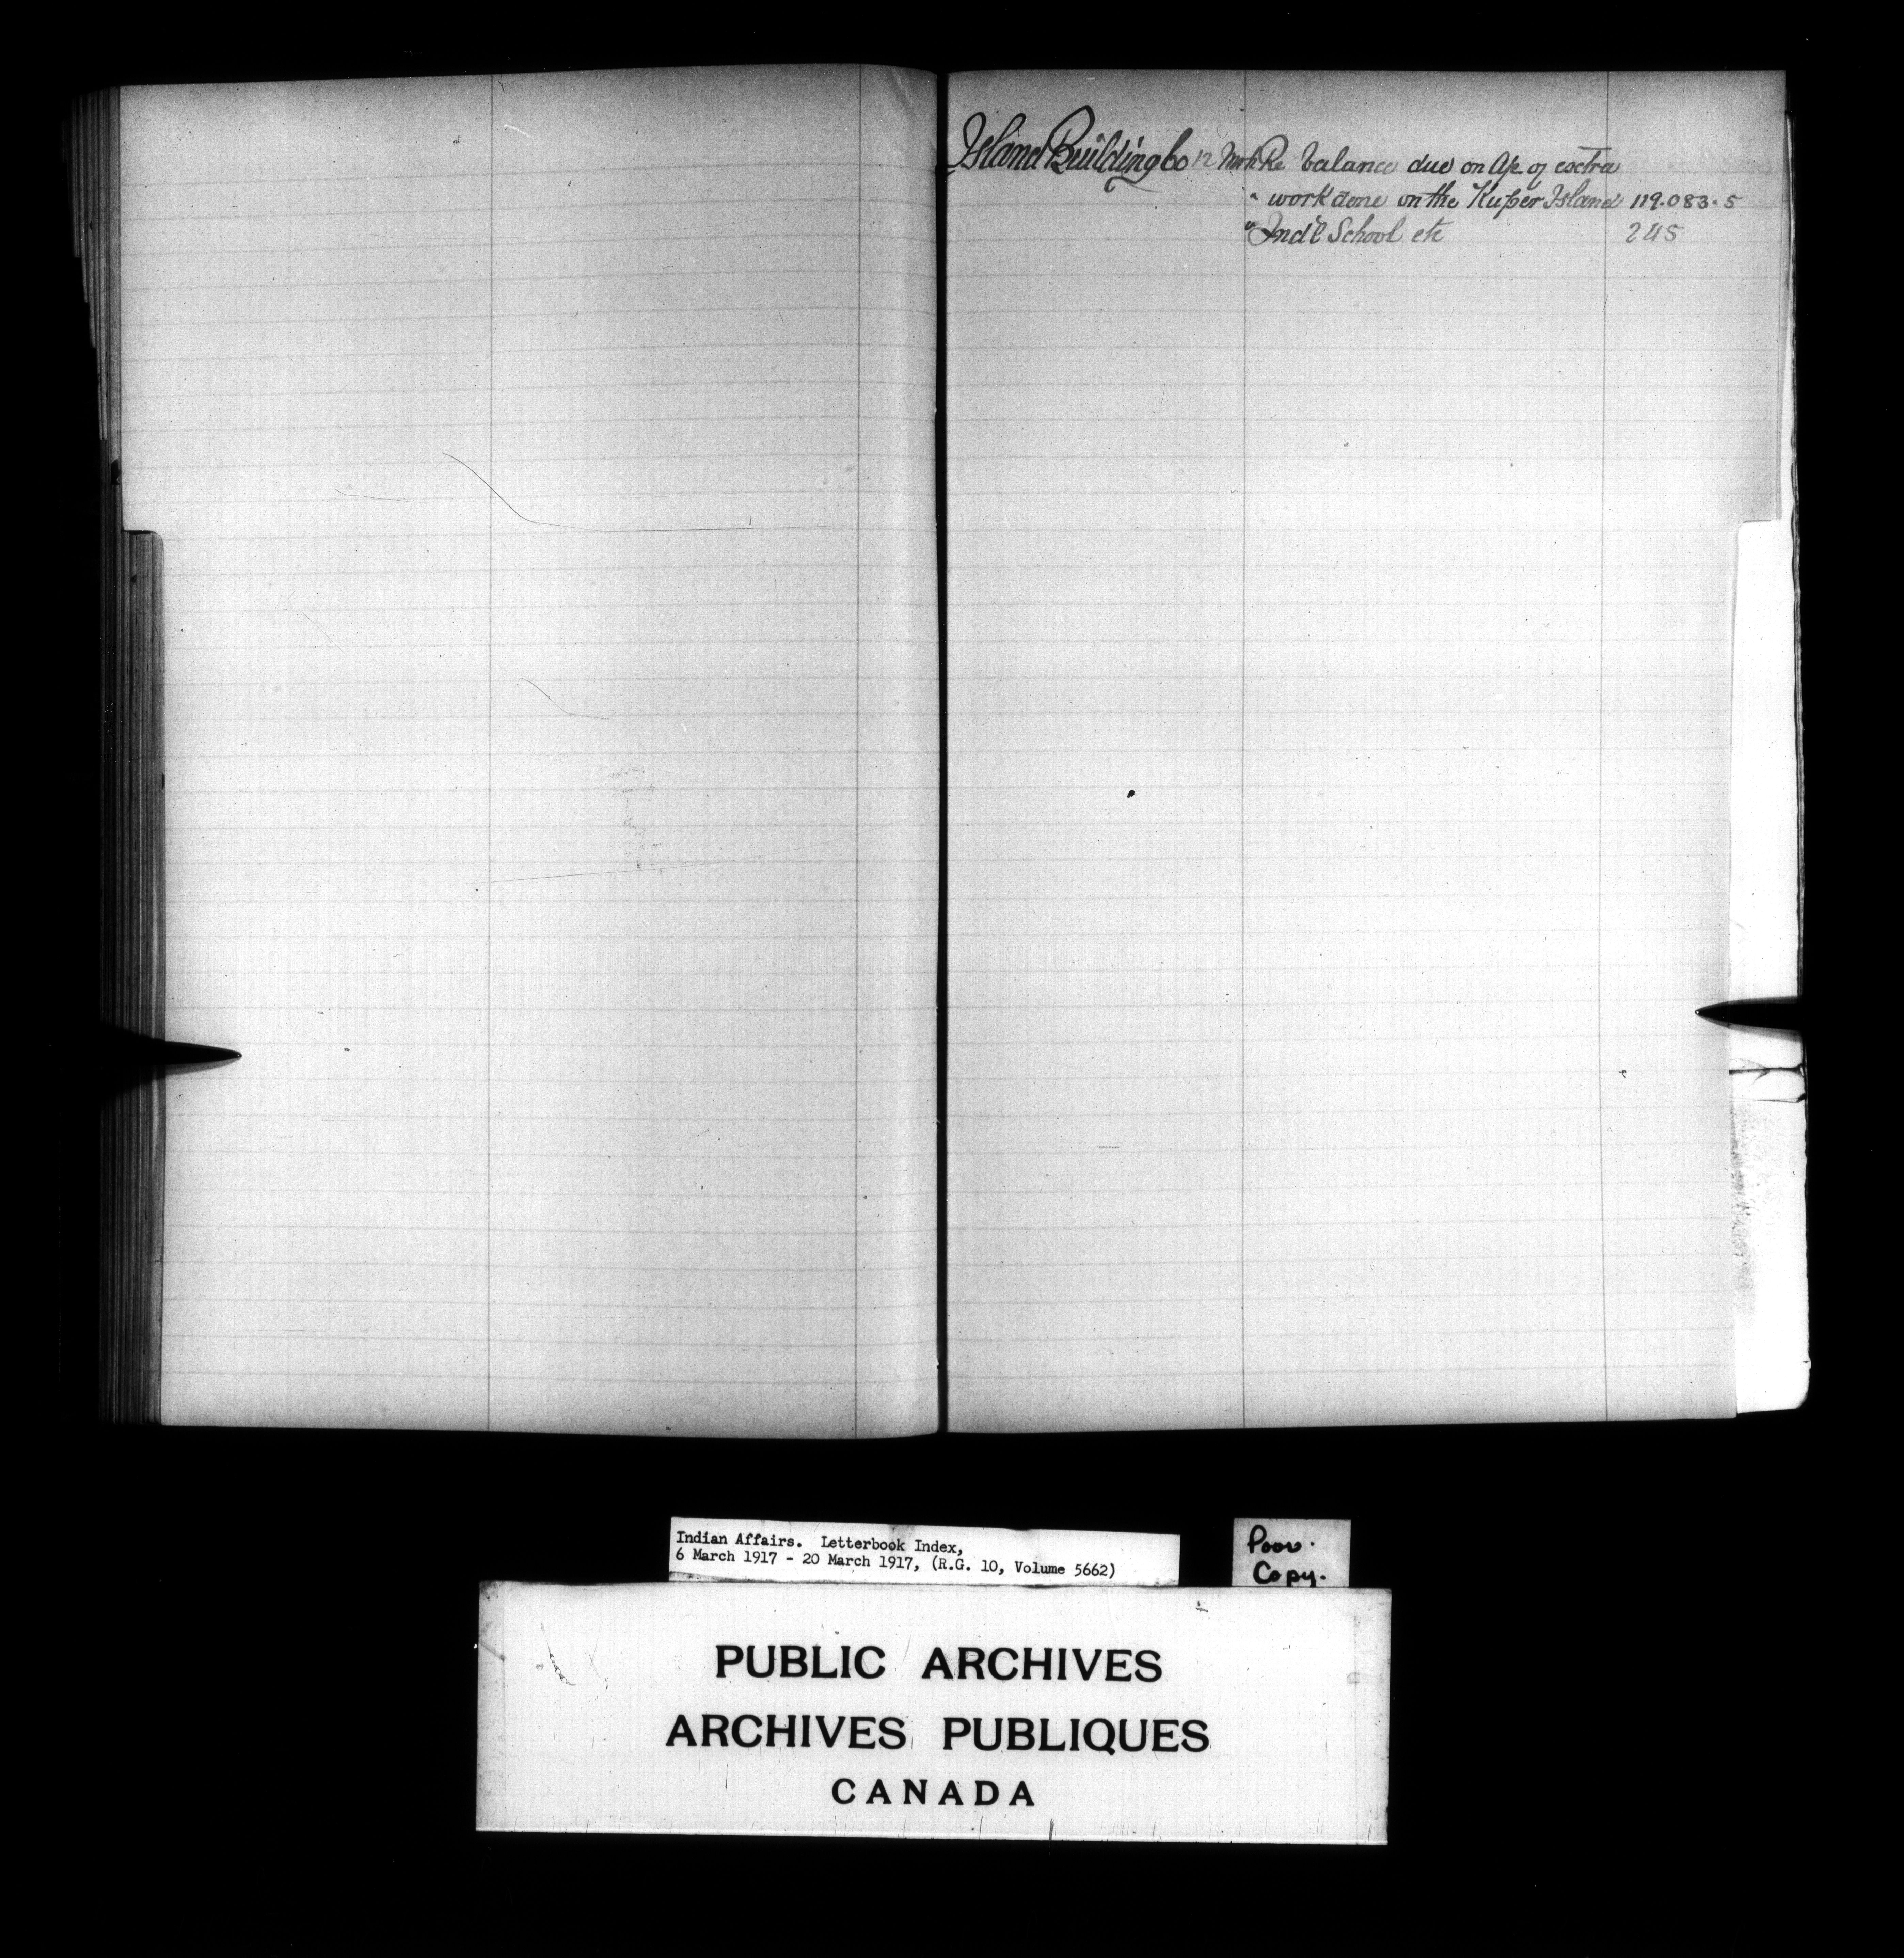 Island Building Co 12 Mch Re balance due on A/c of extra
" work done on the Kuper Island 119.083.5
" Ind'l School etc 245
Indian Affairs. Letterbook Index,
6 March 1917 - 20 March 1917, (R.G. 10, Volume 5662)
Poor.
Copy.
PUBLIC ARCHIVES
ARCHIVES PUBLIQUES
CANADA